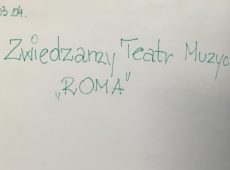 03.04.
Zwiedzamy Teatr Muzyc
„ROMA"